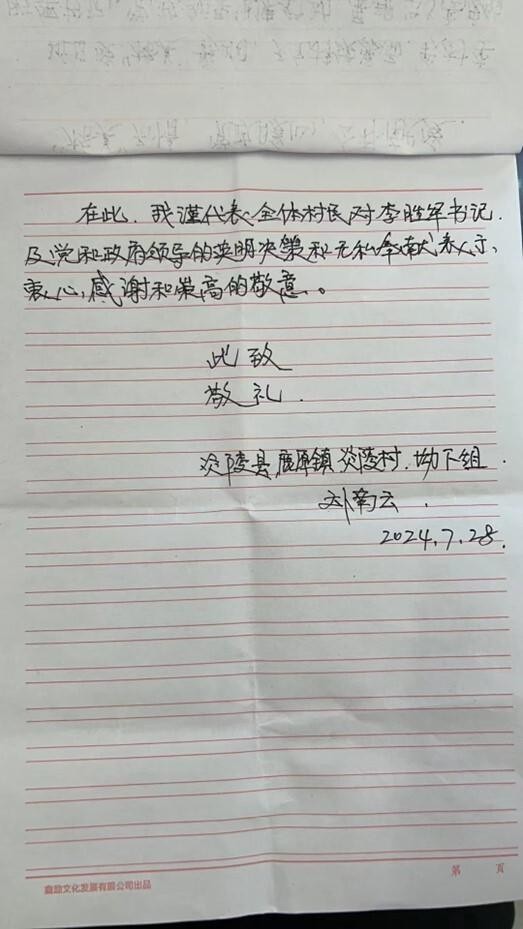 在此.我谨代表全体村民对李胜军书记.
及党和政府领导的英明决策和无私奉献表示、
衷心,感谢和崇高的敬意.。
此致
敬礼.
炎陵县鹿原镇炎陵村.坳下组.
刘南云.
2024.7.28.
第 页
鑫励文化发展有限公司出品